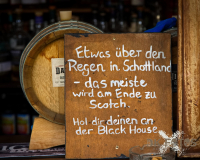 Etwas über den
Regen in Schottland
- das meiste
wird am Ende zu
Scotch.
Hol dir deinen an
der Black House